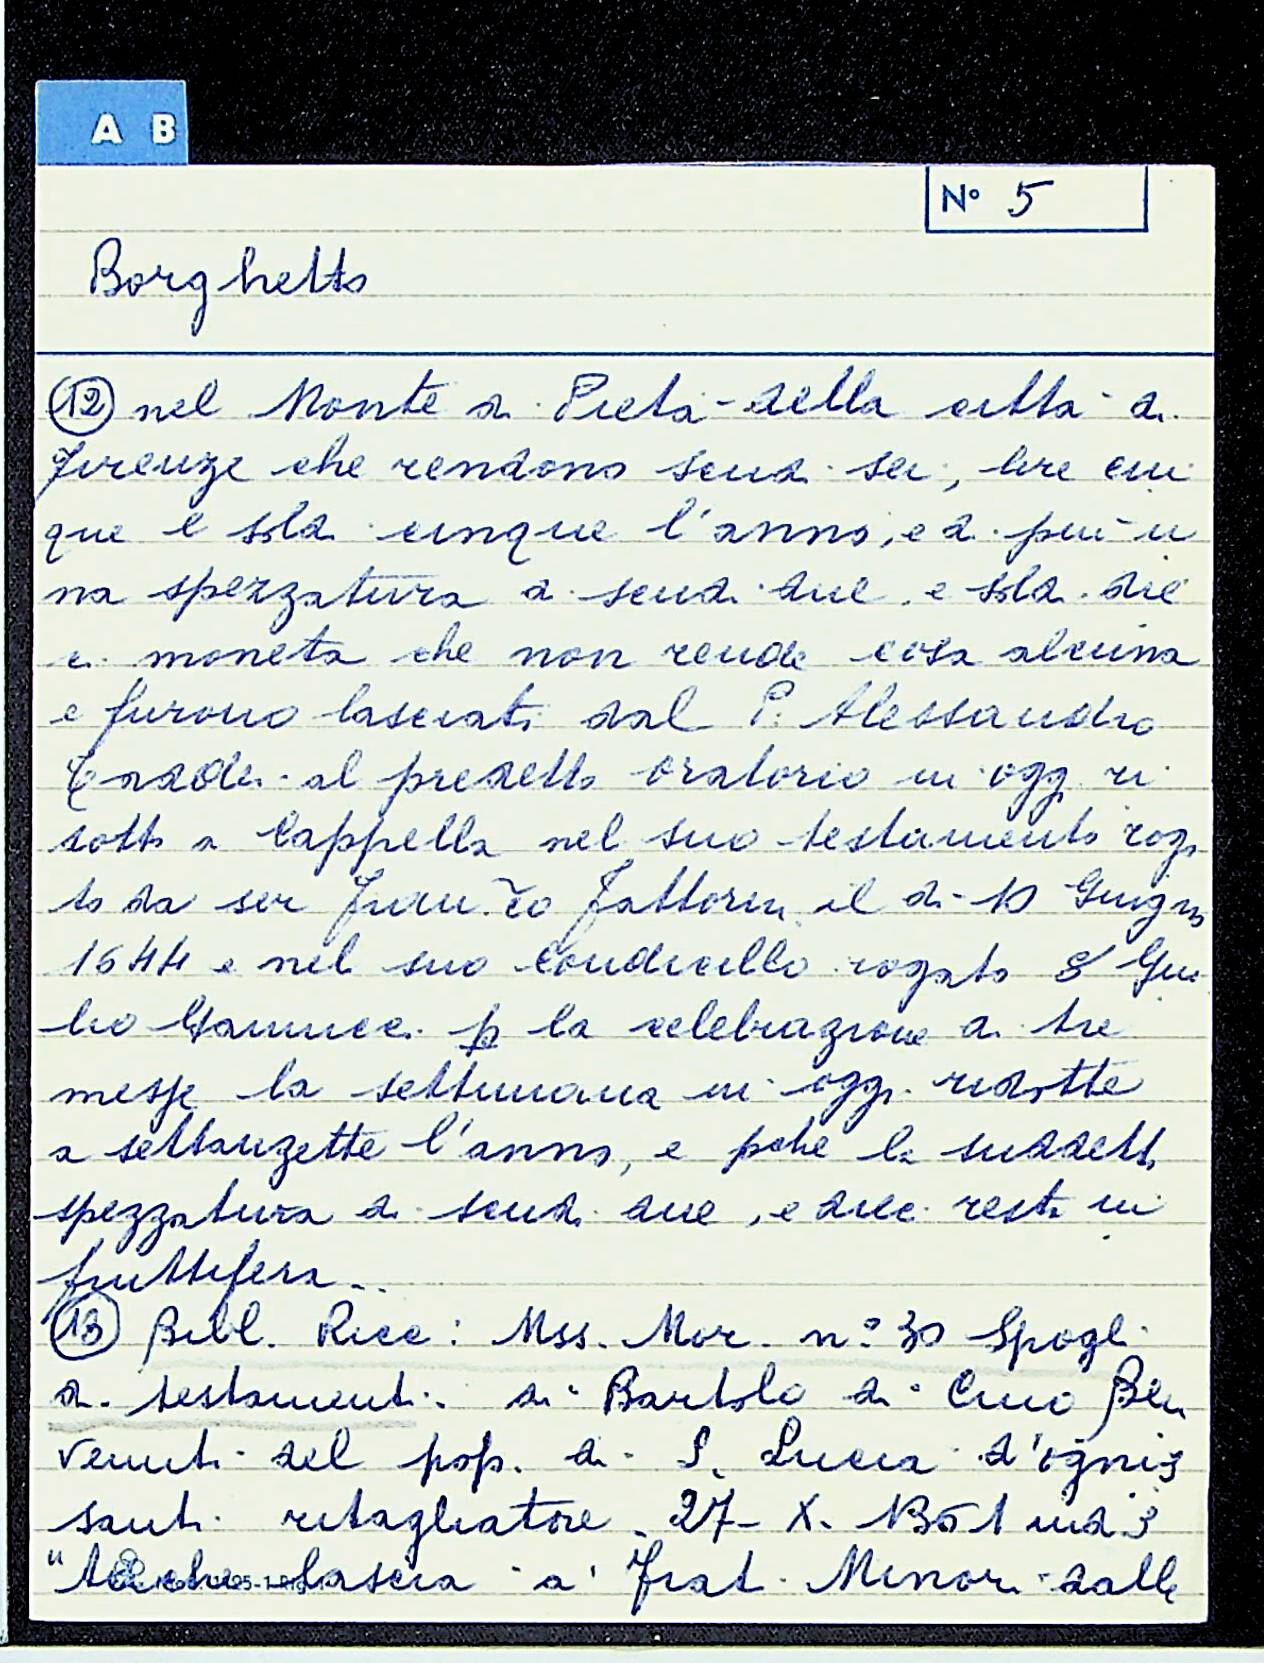 A B
Nº 5
Borghetto
(12) nel Monte di Pietà della città di
Firenze che rendono scudi sei, lire cin
que e soldi cinque l'anno, e di più u
na spezzatura di scudi due e soldi die
ci moneta che non rende cosa alcuna
e furono lasciati dal P. Alessandro
al predetto oratorio in oggi ri
dotto a Cappella nel suo testamento roga
to da ser Fattorini il dì 10 Giugno
1644 e nel suo condicillo rogato Giu
lio p la celebrazione di tre
messe la settimana in oggi ridotte
a settanzette l'anno, e pche la suddett
spezzatura di scudi due, e dieci resta in
fruttifera.
(13) Bibl. Ricc: Mss. Mor. nº 30 Spogli
di testamenti di Bartolo di Cino Ben
venuti del pop. di S. Lucia d'ognis
santi ritagliatore 27- X. ind 3
" lascia a' Frati Minori dalle